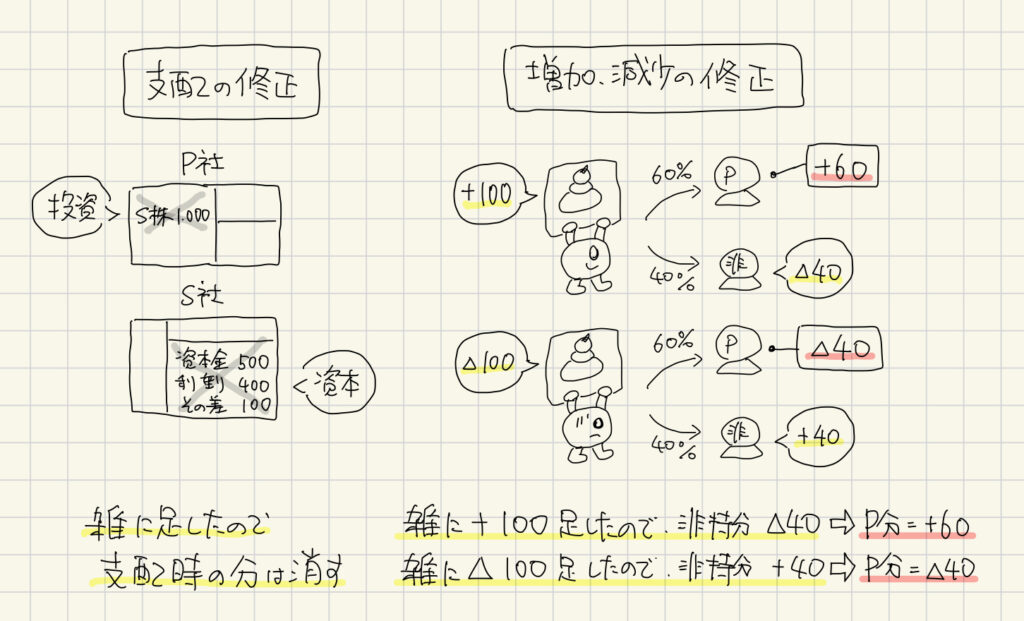 支配乙の修正
増加、減少の修正
P社
投資
S株 1,000
S社
資本金 500
利剰 400
その差 100
資本
+100
60%
P
+60
40%
非
△40
△100
60%
P
△40
40%
非
+40
雑に足したので
支配乙時の分は消す
雑に+100足したので、非持分 △40⇨P分=+60
雑に△100足したので、非持分 +40⇨P分=△40